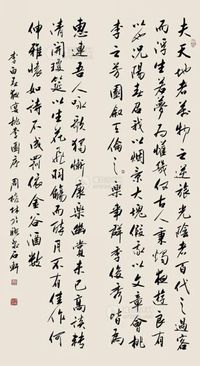 夫天地者萬物之逆旅光陰者百代之過客
而浮生若夢為懽幾何古人秉燭夜遊良有
以也況陽春召我以烟景大塊假我以文章會桃
李之芳園叙天倫之樂事群季俊秀皆為
惠連吾人詠歌獨慚康樂幽賞未已高談轉
清開瓊筵以坐花飛羽觴而醉月不有佳作何
伸雅懷如詩不成罰依金谷酒數
李白春夜宴桃李園序 周 林 石軒